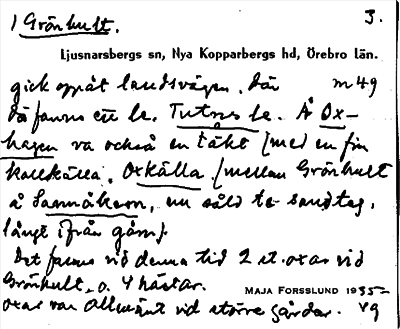 1 Grönhult. 3.
Ljusnarsbergs sn, Nya Kopparbergs hd, Örebro län.
gick oppåt landsvägen. Där m 49
då fanns ett le. Tutnes le. Å Ox-
hagen va också en täkt (med en fin
kallkälla. Oxkälla (mellan Grönhult
å Sannåkern, nu såld te sandtag,
långt ifrån gårn).
Det fanns vid denna tid 2 st. oxar vid
Grönhult o. 4 hästar. MAJA FORSSLUND 1935-
oxar var allmänt vid större gårdar. 49